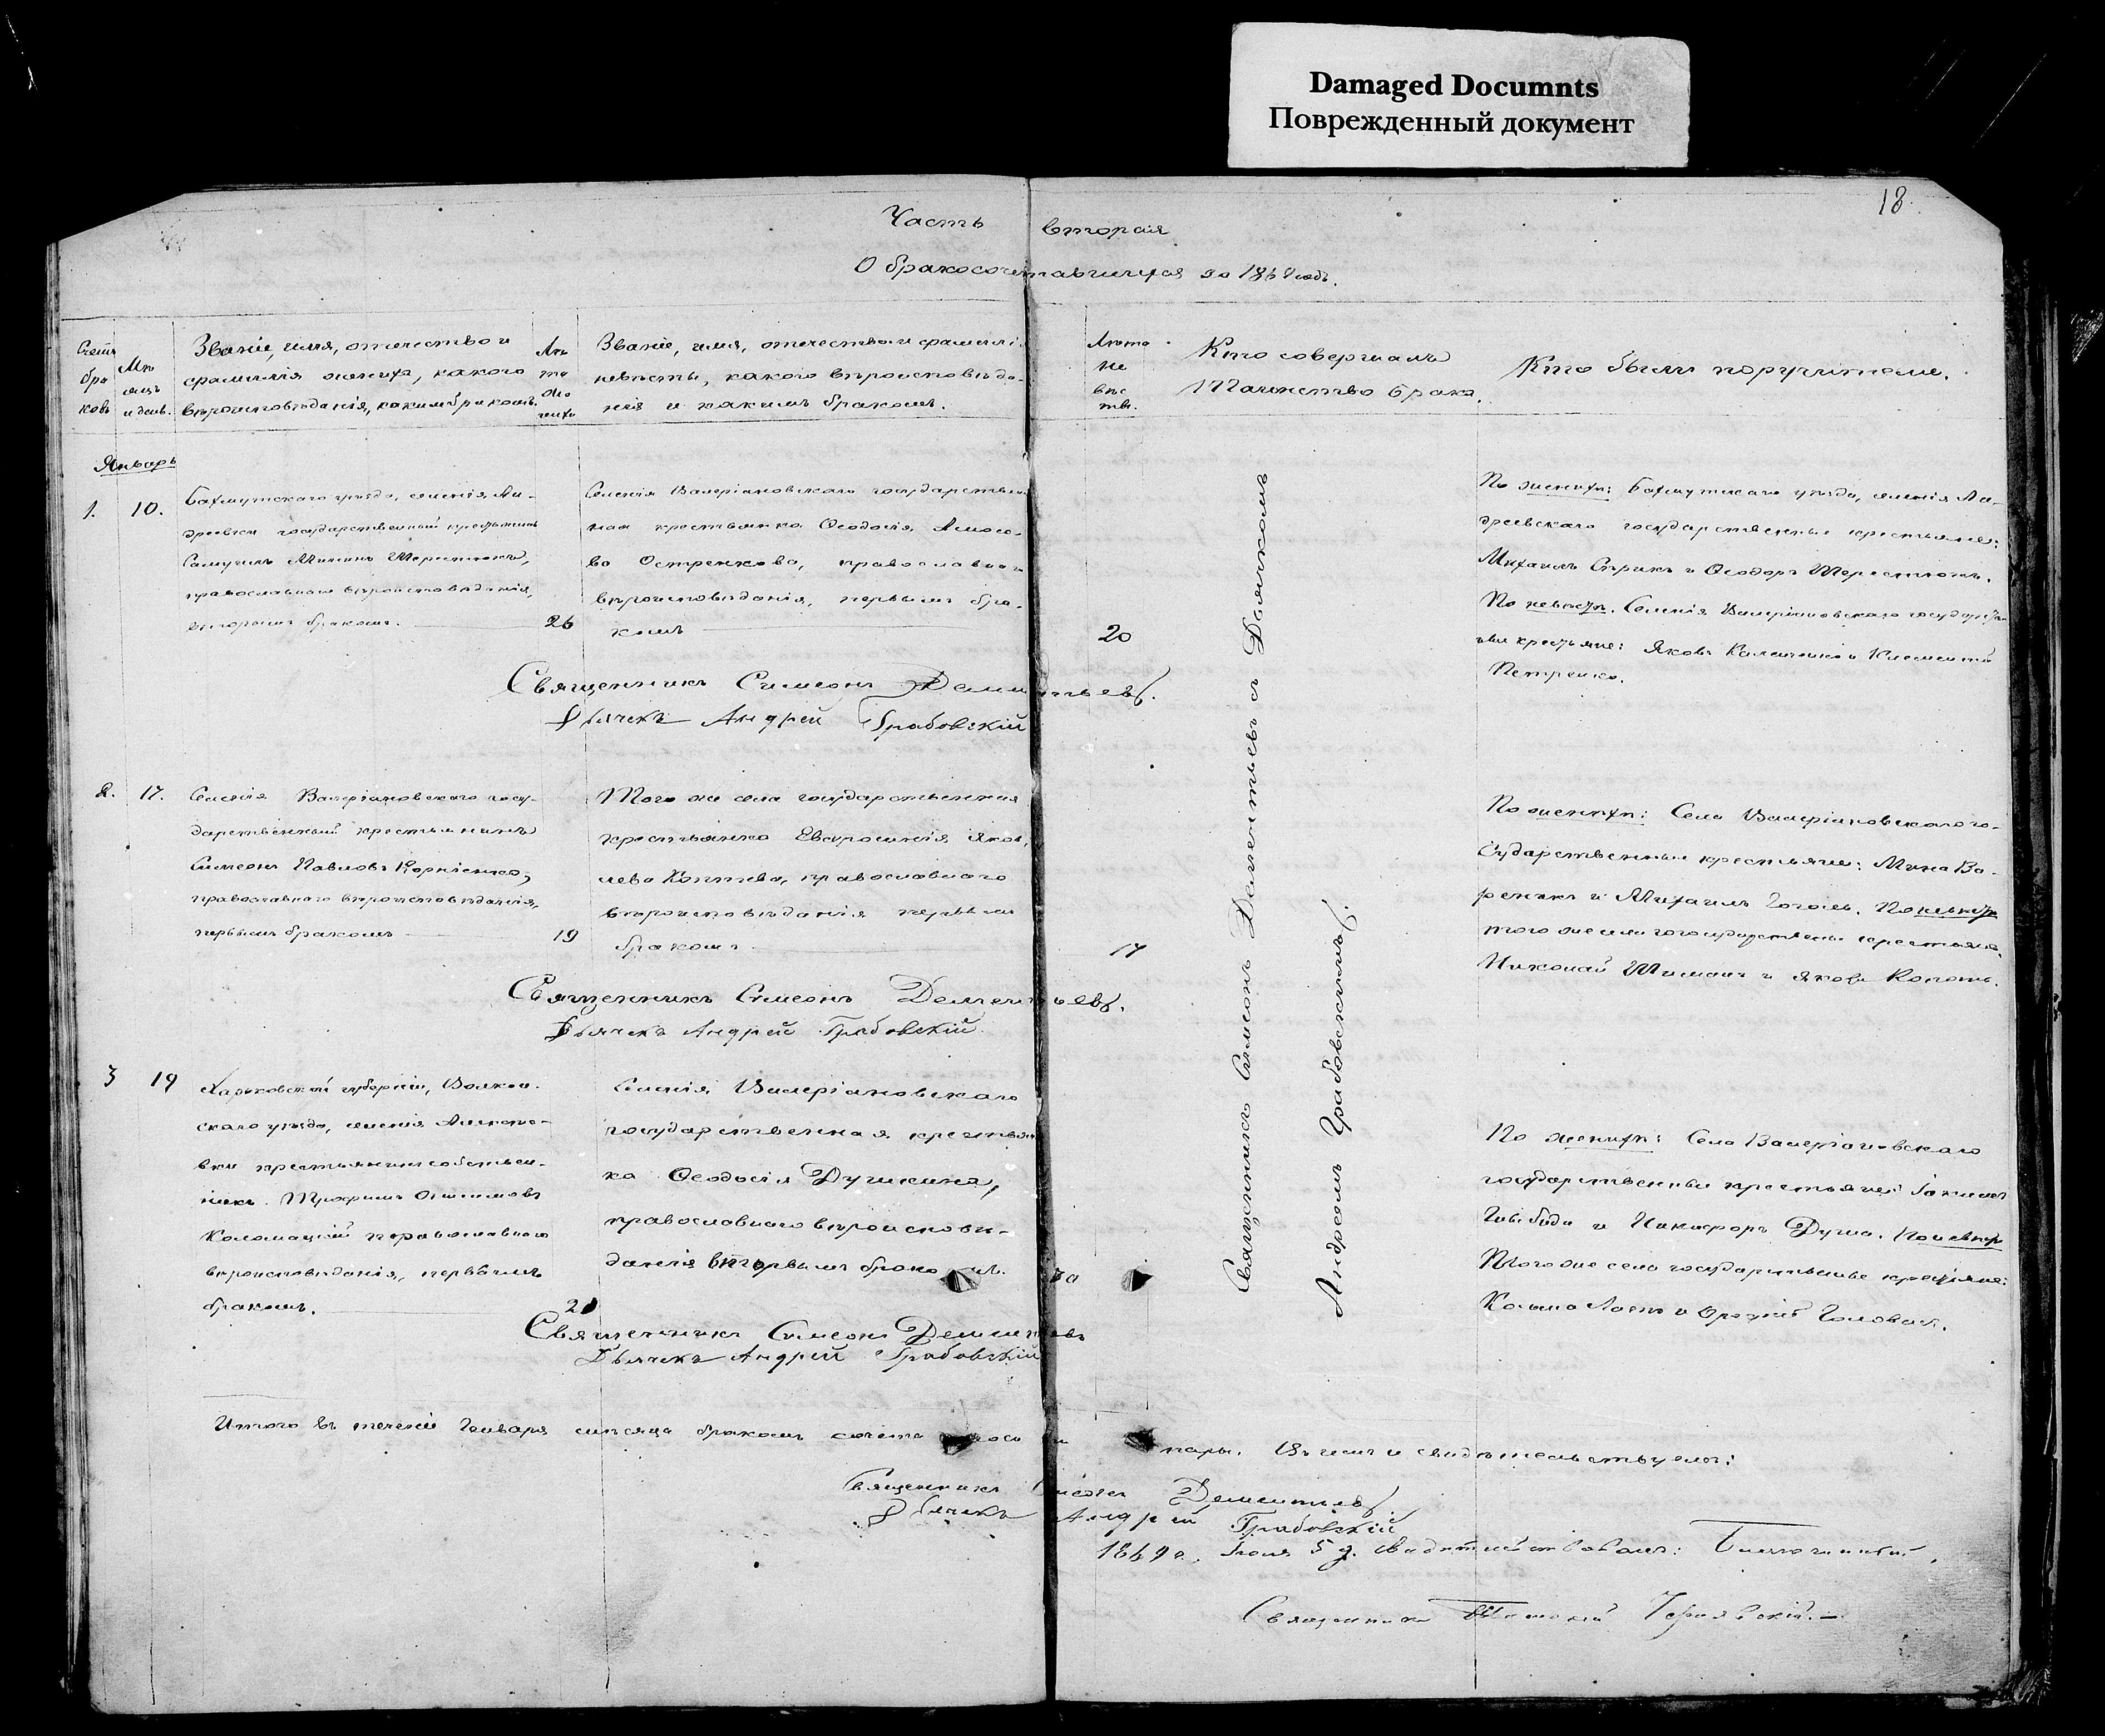 Damaged Documnts
Поврежденный документ
18.
Часть вторая
О бракосочетавшихся за 1869 годъ.
Счетъ браковъ
Мѣсяцъ и день.
Званіе, имя, отчество и
фамилія жениха, какого
вѣроисповѣданія, какимъ бракомъ.
Лѣта жениха
Званіе, имя, отчество и фамилія
невѣсты, какого вѣроисповѣда-
нія и какимъ бракомъ.
Лѣта невѣсты.
Кто совершалъ
Таинство брака.
Кто были поручители.
Январь
1. 10.
Бахмутскаго уѣзда, селенія Ан-
дреевки государственный крестьянинъ
Самуилъ Шерстюкъ,
православнаго вѣроисповѣданія,
вторымъ бракомъ.
26
Селенія Валеріановскаго государствен-
ная крестьянка Ѳеодосія Амосо-
ва Остренкова, православнаго
вѣроисповѣданія, первымъ бра-
комъ
20
По женихѣ: Бахмутскаго уѣзда, селенія Ан-
дреевскаго государственные крестьяне:
Михаилъ и Ѳеодоръ Шерстюкъ.
По невѣстѣ. Селенія Валеріановскаго государствен-
ные крестьяне: Яковъ и Климентій
Петренко.
Священникъ Симеонъ Дементьевъ.
Дьячекъ Андрей Грабовскій
2. 17.
Селенія Валеріановскаго госу-
дарственный крестьянинъ
Симеонъ Павловъ Корніенко,
православнаго вѣроисповѣданія,
первымъ бракомъ
19
Того же села государственная
крестьянка Евфросинія Яков-
лева Коптева, православнаго
вѣроисповѣданія первымъ
бракомъ
17
По женихѣ: Села Валеріановскаго го-
сударственные крестьяне: Мина Ва-
реникъ и Михаилъ Гоголь. По невѣстѣ
того же села государственные крестьяне
Николай Шиманъ и Яковъ Копоть.
Священникъ Симеонъ Дементьевъ.
Дьячекъ Андрей Грабовскій.
3 19
Харьковской губерніи, Волков-
скаго уѣзда, селенія Алексѣе-
вки крестьянинъ собствен-
никъ Трофимъ
Коломацкій православнаго
вѣроисповѣданія, первымъ
бракомъ.
21
Селенія Валеріановскаго
государственная крестьян-
ка Ѳеодосія Душкина,
православнаго вѣроисповѣ-
данія вторымъ бракомъ.
По женихѣ: Села Валеріановскаго
государственные крестьяне: Іакимъ
и Никифоръ Душа. По невѣстѣ
Того же села государственные крестьяне:
Козьма и Головач.
Священникъ Симеонъ Дементьевъ
Дьячекъ Андрей Грабовскій
Священникъ Симеонъ Дементьевъ съ Дьячкомъ
Андреемъ Грабовскимъ.
Итого въ теченіе Января мѣсяца бракомъ сочеталось пары. Въ чемъ и свидѣтельствуемъ:
Священникъ Симеонъ Дементьевъ
Дьячекъ Андрей Грабовскій
1869 г. 5 д. свидѣтельствовалъ: Благочинный,
Священникъ Чернявскій.